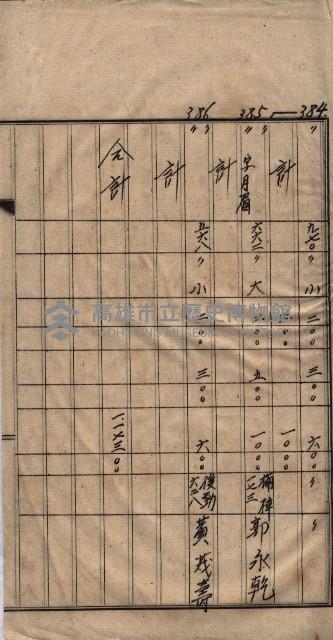 384.
〃
九七〇
〃
小
二〇〇
三〇〇
六〇〇
〃
〃
計
一〇〇〇
385
〃 〃
字月眉
六六二
〃
大
五〇〇
一〇〇〇
楠梓
一七三
郭永乾
計
386
〃 〃
五六八
〃
小
二〇〇
三〇〇
六〇〇
後勁
六二八
黃茂壽
計
合計
一.一七三〇〇
高雄市立歷史博物館
KAOHSIUNG MUSEUM OF HISTORY